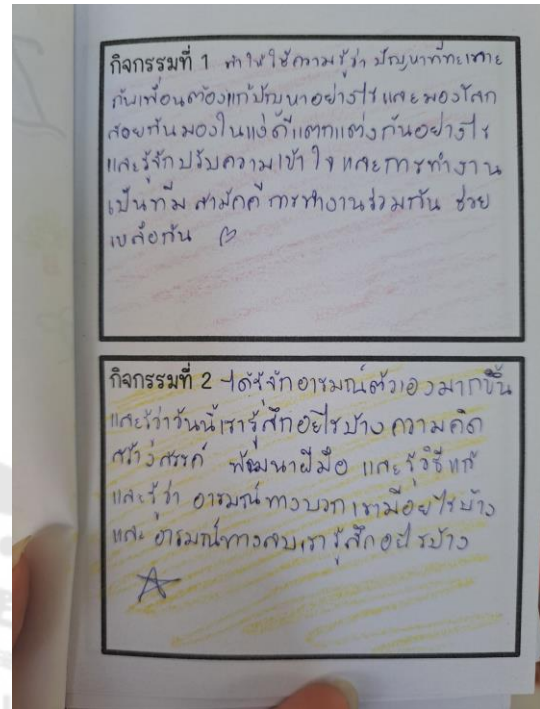 กิจกรรมที่ 1 ทำให้ใช้ความรู้ว่า ปัญหาที่ทะเลาะ
กับเพื่อนต้องแก้ปัญหาอย่างไร และมองโลก
สอยกันมองในแง่ดีแตกแต่งกันอย่างไร
และรู้จักปรับความเข้าใจ และการทำงาน
เป็นทีม สามัคคี การทำงานร่วมกัน ช่วย
เหลือกัน
กิจกรรมที่ 2 ได้รู้จักอารมณ์ตัวเองมากขึ้น
และรู้ว่าวันนี้เรารู้สึกอย่ไรบ้าง ความคิด
สร้างสรรค์ พัฒนาฝีมือ และรู้วิธีแก้
และรู้ว่า อารมณ์ทางบวกเรามีอยไรบ้าง
และอารมณ์ทางลบเรารู้สึกอย่ไรบ้าง